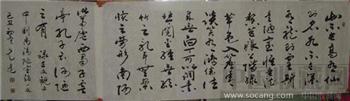 山不在高有仙
则名水不在深
有龙则灵斯
是陋室惟吾德
馨苔痕上阶绿
草色入帘青
谈笑有鸿儒往
来无白丁可以调素
琴阅金经无
丝竹之乱耳无案
牍之劳形南阳
诸葛庐西蜀子云
亭孔子云何陋
之有
www.socang.com